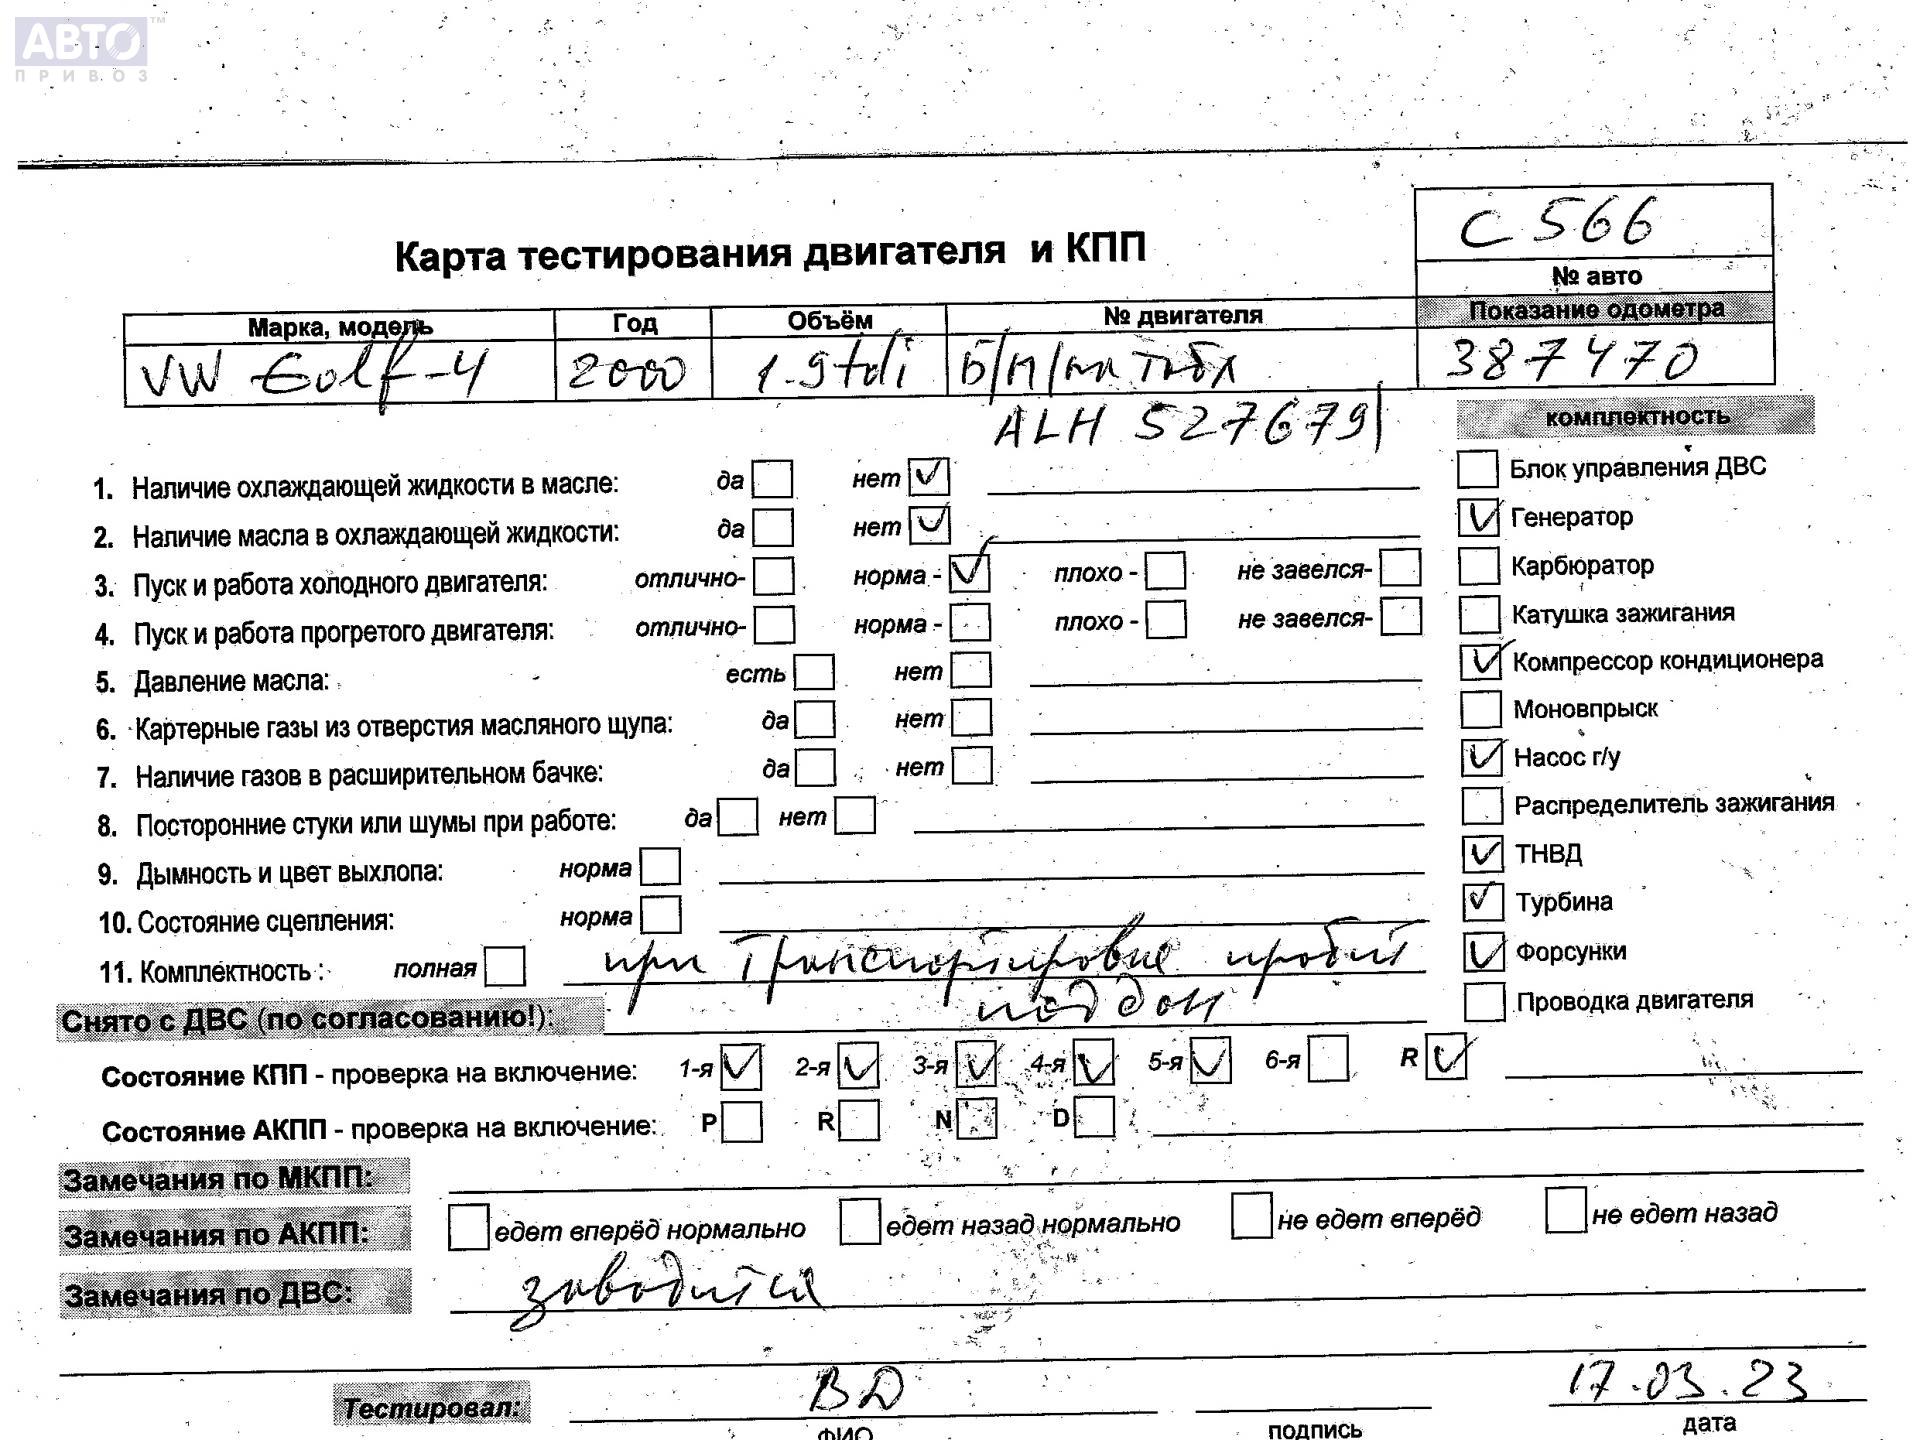 АВТО™
ПРИВОЗ
С 566
Карта тестирования двигателя и КПП
№ авто
Марка, модель Год Объём № двигателя Показание одометра
VW Golf-4 2000 1.9tdi Б/Н/на табл 387470
ALH 527679
комплектность
1. Наличие охлаждающей жидкости в масле: да нет ✓ Блок управления ДВС
2. Наличие масла в охлаждающей жидкости: да нет ✓ ✓ Генератор
3. Пуск и работа холодного двигателя: отлично- норма - ✓ плохо - не завелся- Карбюратор
4. Пуск и работа прогретого двигателя: отлично- норма - плохо - не завелся- Катушка зажигания
5. Давление масла: есть нет ✓ Компрессор кондиционера
6. Картерные газы из отверстия масляного щупа: да нет Моновпрыск
7. Наличие газов в расширительном бачке: да нет ✓ Насос г/у
8. Посторонние стуки или шумы при работе: да нет Распределитель зажигания
9. Дымность и цвет выхлопа: норма ✓ ТНВД
10. Состояние сцепления: норма ✓ Турбина
11. Комплектность : полная при транспортировке пробит ✓ Форсунки
Снято с ДВС (по согласованию!): поддон Проводка двигателя
Состояние КПП - проверка на включение: 1-я ✓ 2-я ✓ 3-я ✓ 4-я ✓ 5-я ✓ 6-я R ✓
Состояние АКПП - проверка на включение: P R N D
Замечания по МКПП:
Замечания по АКПП: едет вперёд нормально едет назад нормально не едет вперёд не едет назад
Замечания по ДВС: заводится
Тестировал: ВД 17.03.23
ФИО подпись дата